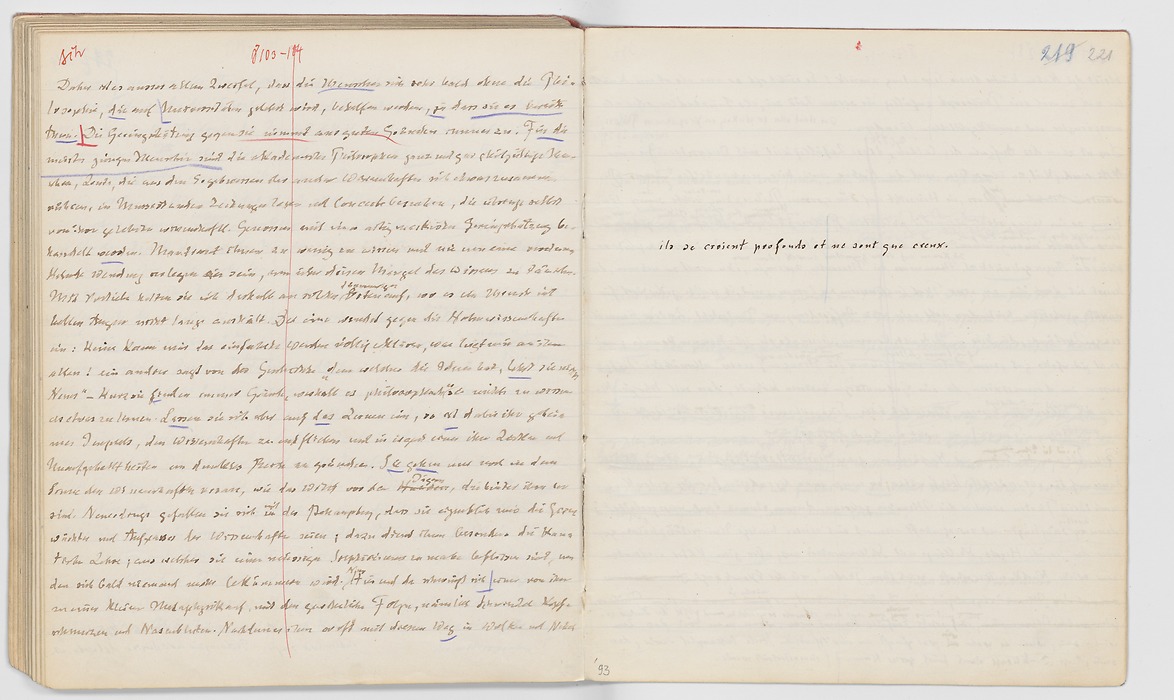 8103-114
219 221
Daher ist es ausser allem Zweifel, dass die Menschen sich sehr bald ohne die Philo-
sophie, die auf Universitäten gelehrt wird, behelfen werden, ja dass sie es bereits
thun. Die Geringschätzung gegen sie nimmt aus guten Gründen immer zu. Für die
meisten junge Menschen sind die akademischen Philosophen ganz und gar gleichgültige Men-
schen, Leute, die aus den Ergebnissen der andern Wissenschaften sich etwas zusammen
rühren, in Mussestunden Zeitungen lesen und Concerte besuchen, die übrigens selbst
von ihren gelehrten Genossen mit einer artig maskirten Geringschätzung be-
handelt werden. Man traut ihnen zu wenig zu wissen und nie um eine
Wendung verlegen zu sein, um über diesen Mangel des Wissens zu täuschen.
Mit Vorliebe halten sie sich deshalb an solchen dämmrigen Orten auf, wo es ein Mensch mit
hellen Augen nicht lange aushält. Der eine wendet gegen die Naturwissenschaften
ein: Keine kann mir das einfachste Werden völlig erklären, was liegt mir an ihnen
allen! ein andrer sagt von der Geschichte „dem welcher die Ideen hat, sagt sie nichts
Neues" – Kurz sie finden immer Gründe, weshalb es philosophischer sei nichts zu wissen
als etwas zu lernen. Lassen sie sich aber auf das Lernen ein, so ist dabei ihr gehei-
mer Impuls, den Wissenschaften zu entfliehen und in irgend einer ihrer Lücken und
Unaufgehelltheiten ein dunkles Reich zu gründen. So gehen sie nur noch in dem
Sinne den Wissenschaften voran, wie das Wild vor den Jägern, die hinter ihm her
sind. Neuerdings gefallen sie sich in der Behauptung, dass sie eigentlich nur die Grenz-
wächter und Aufpasser der Wissenschaften seien; dazu dient ihnen besonders die Kan-
tische Lehre, aus welcher sie einen müssigen Scepticismus zu machen beflissen sind, um
den sich bald niemand mehr bekümmern wird. Nur hier und da schwingt sich einer von ihnen
zu einer kleinen Metaphysik auf, mit den gewöhnlichen Folgen, nämlich Schwindel Kopf-
schmerzen und Nasenbluten. Nachdem es ihnen so oft mit diesem Weg in Wolken und Nebel
ils se croient profonds et ne sont que creux.
93